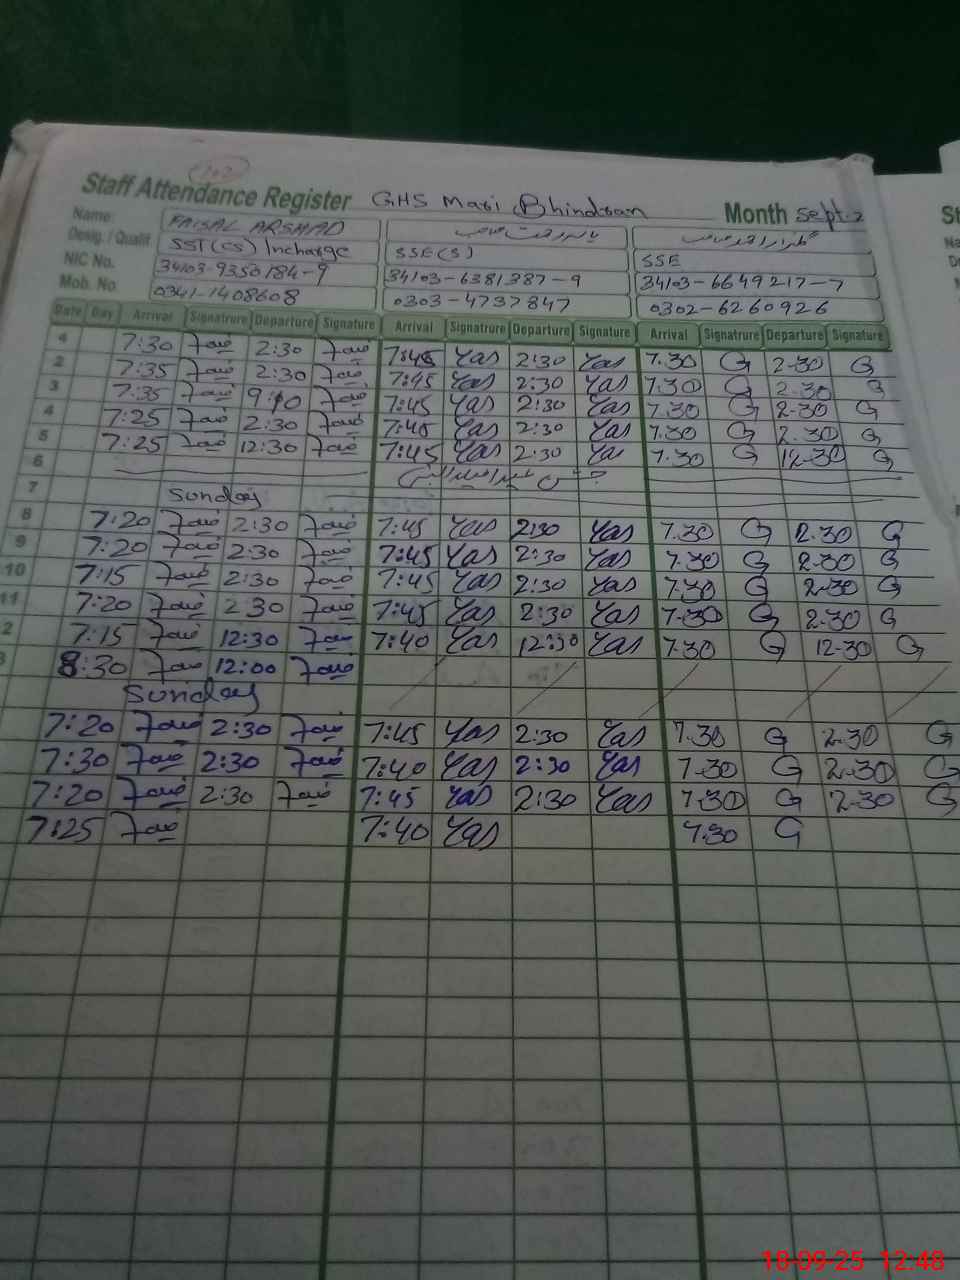 Staff Attendance Register GHS Mari Bhindran Month Sept-2
Name: FAISAL ARSHAD
Desig. / Qualif. SST (CS) Incharge SSE (S) SSE
NIC No. 34103-9350184-9 34103-6381387-9 34103-6649217-7
Mob. No. 0341-1408608 0303-4737847 0302-6260926
Date Day Arrival Signatrure Departure Signature Arrival Signatrure Departure Signature Arrival Signatrure Departure Signature
7:30 2:30 7:45 Yas 2:30 Yas 7.30 G 2-30 G
2 7:35 2:30 7:45 Yas 2:30 Yas 7.30 G 2.30 G
3 7:35 9:10 7:45 Yas 2:30 Yas 7.30 G 2-30 G
4 7:25 2:30 7:45 Yas 2:30 Yas 7.30 G 2.30 G
5 7:25 12:30 7:45 Yas 2:30 Yas 7.30 G 12-30 G
6
7 Sunday
8 7:20 2:30 7:45 Yas 2:30 Yas 7.30 G 2.30 G
9 7:20 2:30 7:45 Yas 2:30 Yas 7.30 G 2-30 G
10 7:15 2:30 7:45 Yas 2:30 Yas 7.30 G 2-30 G
11 7:20 2:30 7:45 Yas 2:30 Yas 7-30 G 2-30 G
2 7:15 12:30 7:40 Yas 12:30 Yas 7.30 G 12-30 G
3 8:30 12:00
Sunday
7:20 2:30 7:45 Yas 2:30 Yas 7.30 G 2.30 G
7:30 2:30 7:40 Yas 2:30 Yas 7.30 G 2-30 G
7:20 2:30 7:45 Yas 2:30 Yas 7.30 G 2-30 G
7:25 7:40 Yas 7.30 G
18-09-25 12:48